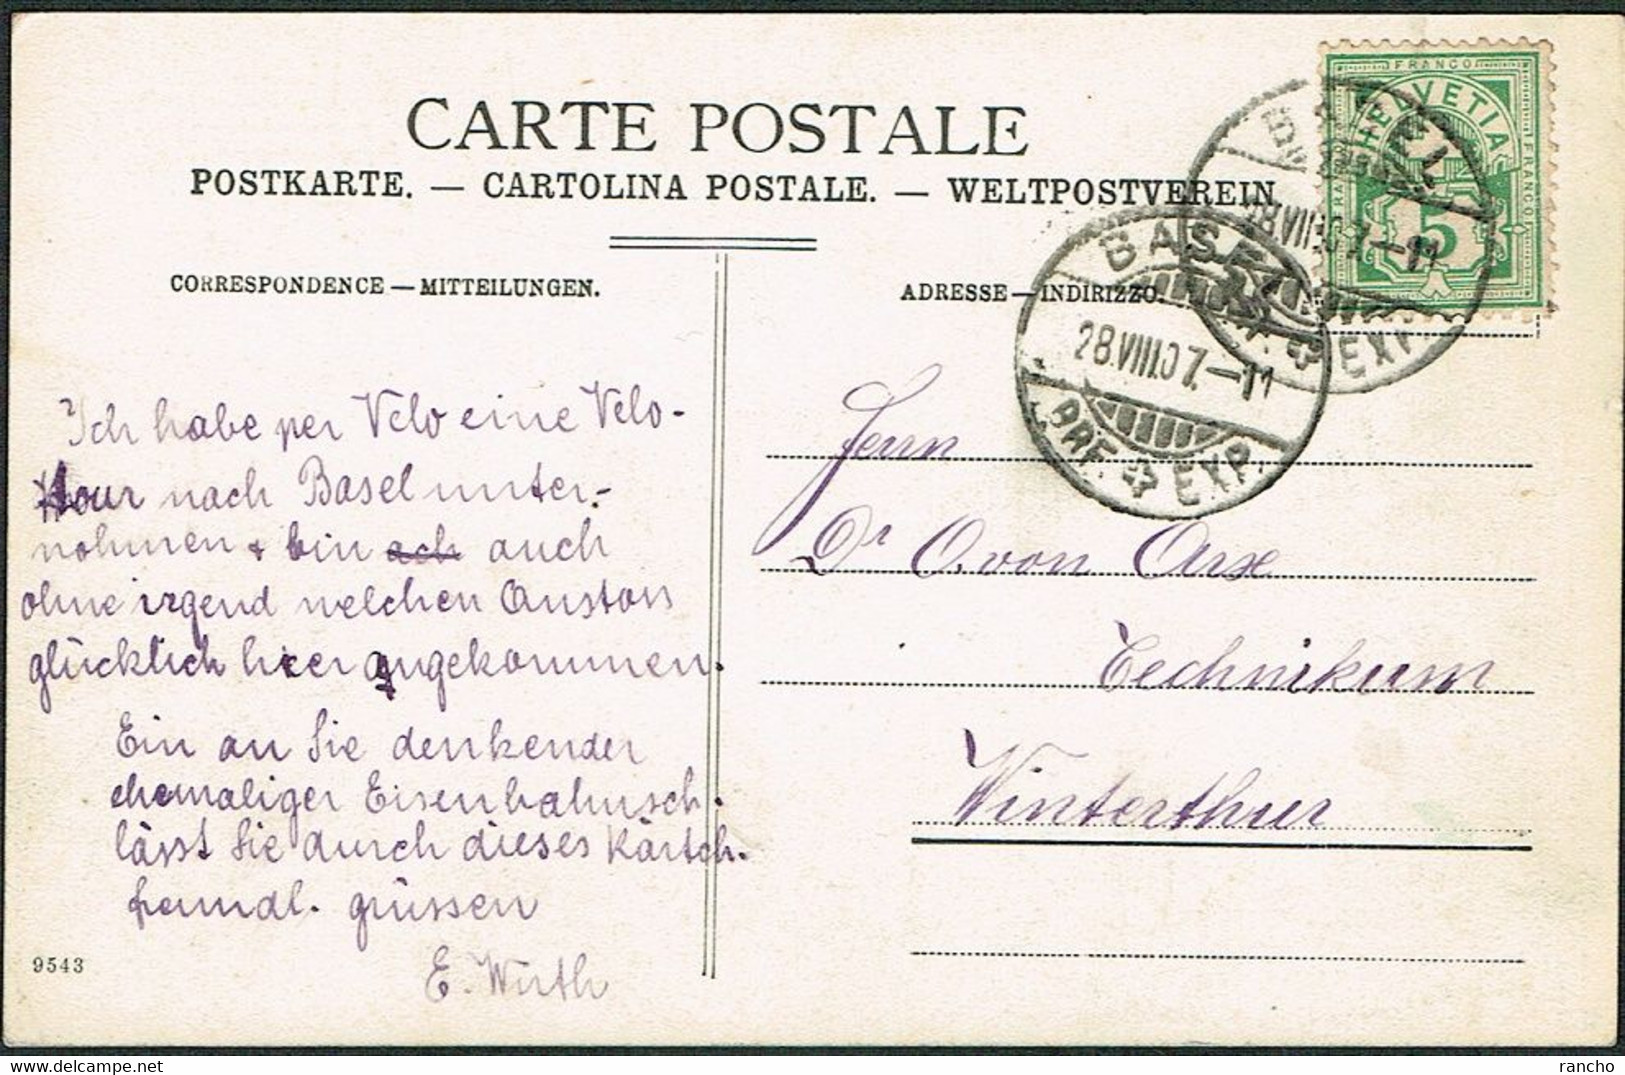 CARTE POSTALE
POSTKARTE. — CARTOLINA POSTALE. — WELTPOSTVEREIN.
CORRESPONDENCE — MITTEILUNGEN.
ADRESSE — INDIRIZZO.
FRANCO
HELVETIA
FRANCO
FRANCO
5
BASEL
28.VIII.07.—11
BRF. EXP.
BASEL
28.VIII.07.—11
BRF. EXP.
Ich habe per Velo eine Velo-
tour nach Basel unter-
nohmen + bin ach auch
ohne irgend welchen Anstoss
glücklich hier angekommen.
Ein an Sie denkender
ehemaliger Eisenbahnsch.
lässt Sie durch dieses Kärtch.
freundl. grüssen
E. Wirth
Herrn
Dr O. von Arx
Technikum
Winterthur
9543
delcampe.net
rancho